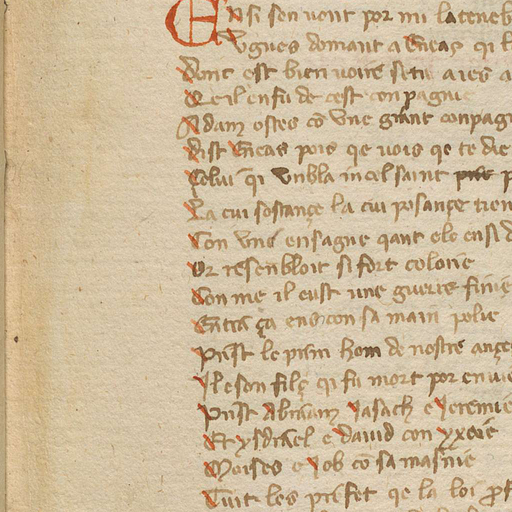 Ensi sen vont por mi la teneb
Ugues domant a Eneas qi l
Donc est bien voire se tu aies a
Qe il en fu de cest conpagnie
Adam ostes cō vne grant conpagn
Dist Eneas pois qe vois qe te die
Celui qi vnbla in cel saint p
La cui sostançe la cui posançe tien
Con vne ensagne qant ele ensi d
Or resenbloit si fort colorie
Con me il eust une guerre finie
Entra ça ens con sa main polie
Prist le prim hom de nostre ançe
Il e son filç qi fu mort por envie
Prist Abraam Ysach e Jeremie
Et ysdrael e david con
Moises e Job cō sa masnie
Tuit les prifet qe la loi prof